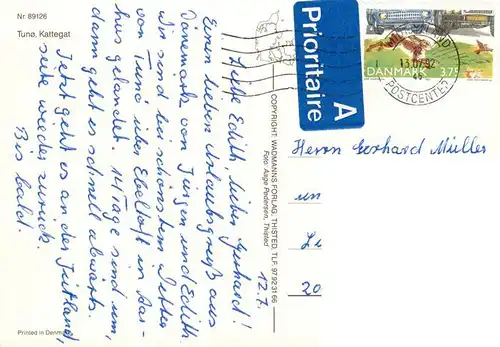 Nr 89126
Tunø, Kattegat
12.7.
Liebe Edith, lieber Gerhard!
Einen lieben Urlaubsgruß aus
Dänemark von Jürgen und Edith.
Wir sind bei schönstem Wetter
von Tunø über Ebeltoft in Aar-
hus gelandet. 14 Tage sind um,
dann geht es schnell abwärts.
Jetzt geht es an der Jütland,
seite wieder zurück.
Bis bald.
Printed in Denm
COPYRIGHT: WADMANNS FORLAG, THISTED, TLF. 97 92 31 66
Foto: Aage Pedersen, Thisted
Prioritaire
A
13.07.92
POSTCENTER
DANMARK 3.75
Herrn Gerhard Müller
un
Le
20